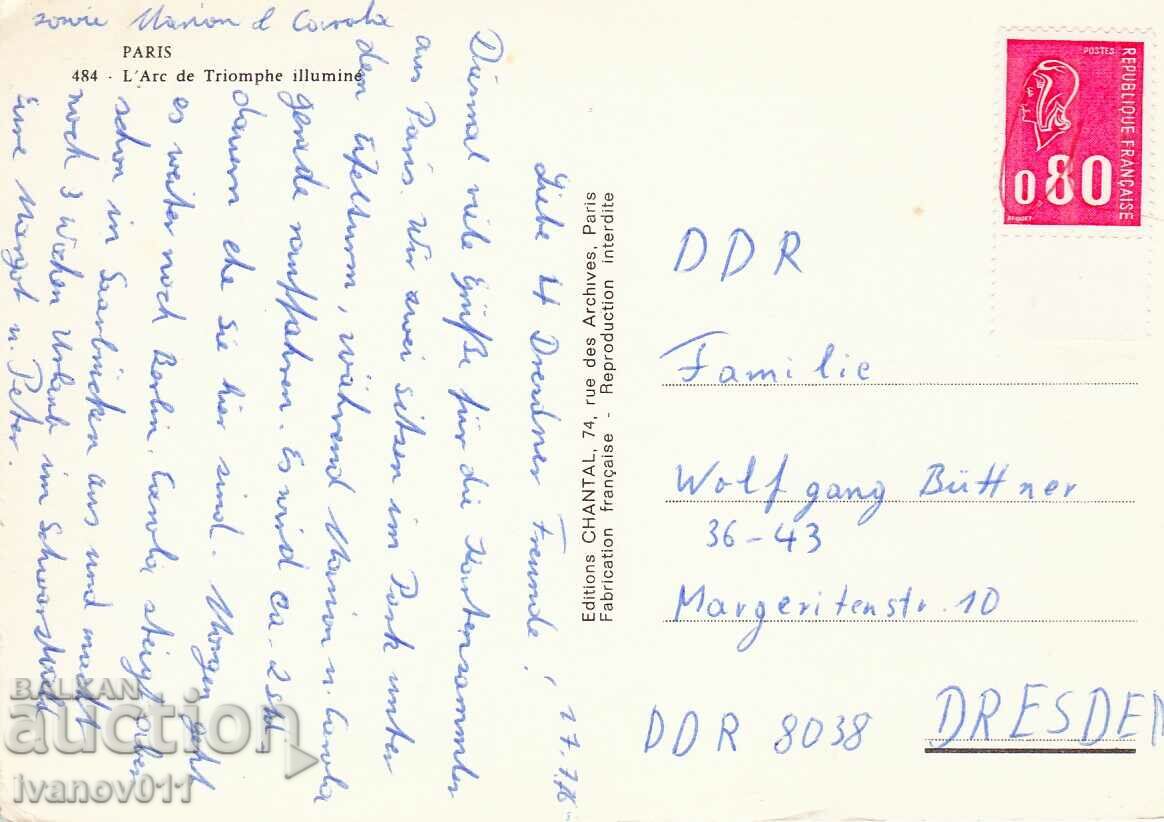 PARIS
484 - L'Arc de Triomphe illuminé
Liebe 4 Dresdner Freunde! 17.7.76
Diesmal viele Grüße für die Kartensammler
aus Paris. Wir zwei sitzen im Park unter
dem Eifelturm, während Marion u. Carola
gerade rauffahren. Es wird ca. 2 Std.
dauern ehe sie hier sind. Morgen geht
es weiter nach Berlin. Carola steigt aber
schon in Saarbrücken aus und macht
noch 3 Wochen Urlaub im Schwarzwald
Eure Margot u. Peter.
sowie Marion & Carola
Editions CHANTAL, 74, rue des Archives, Paris
Fabrication française - Reproduction interdite
POSTES
REPUBLIQUE FRANÇAISE
0,80
BEQUET
DDR
Familie
Wolfgang Büttner
36-43
Margeritenstr. 10
DDR 8038 DRESDEN
BALKAN
auction
ivanov011